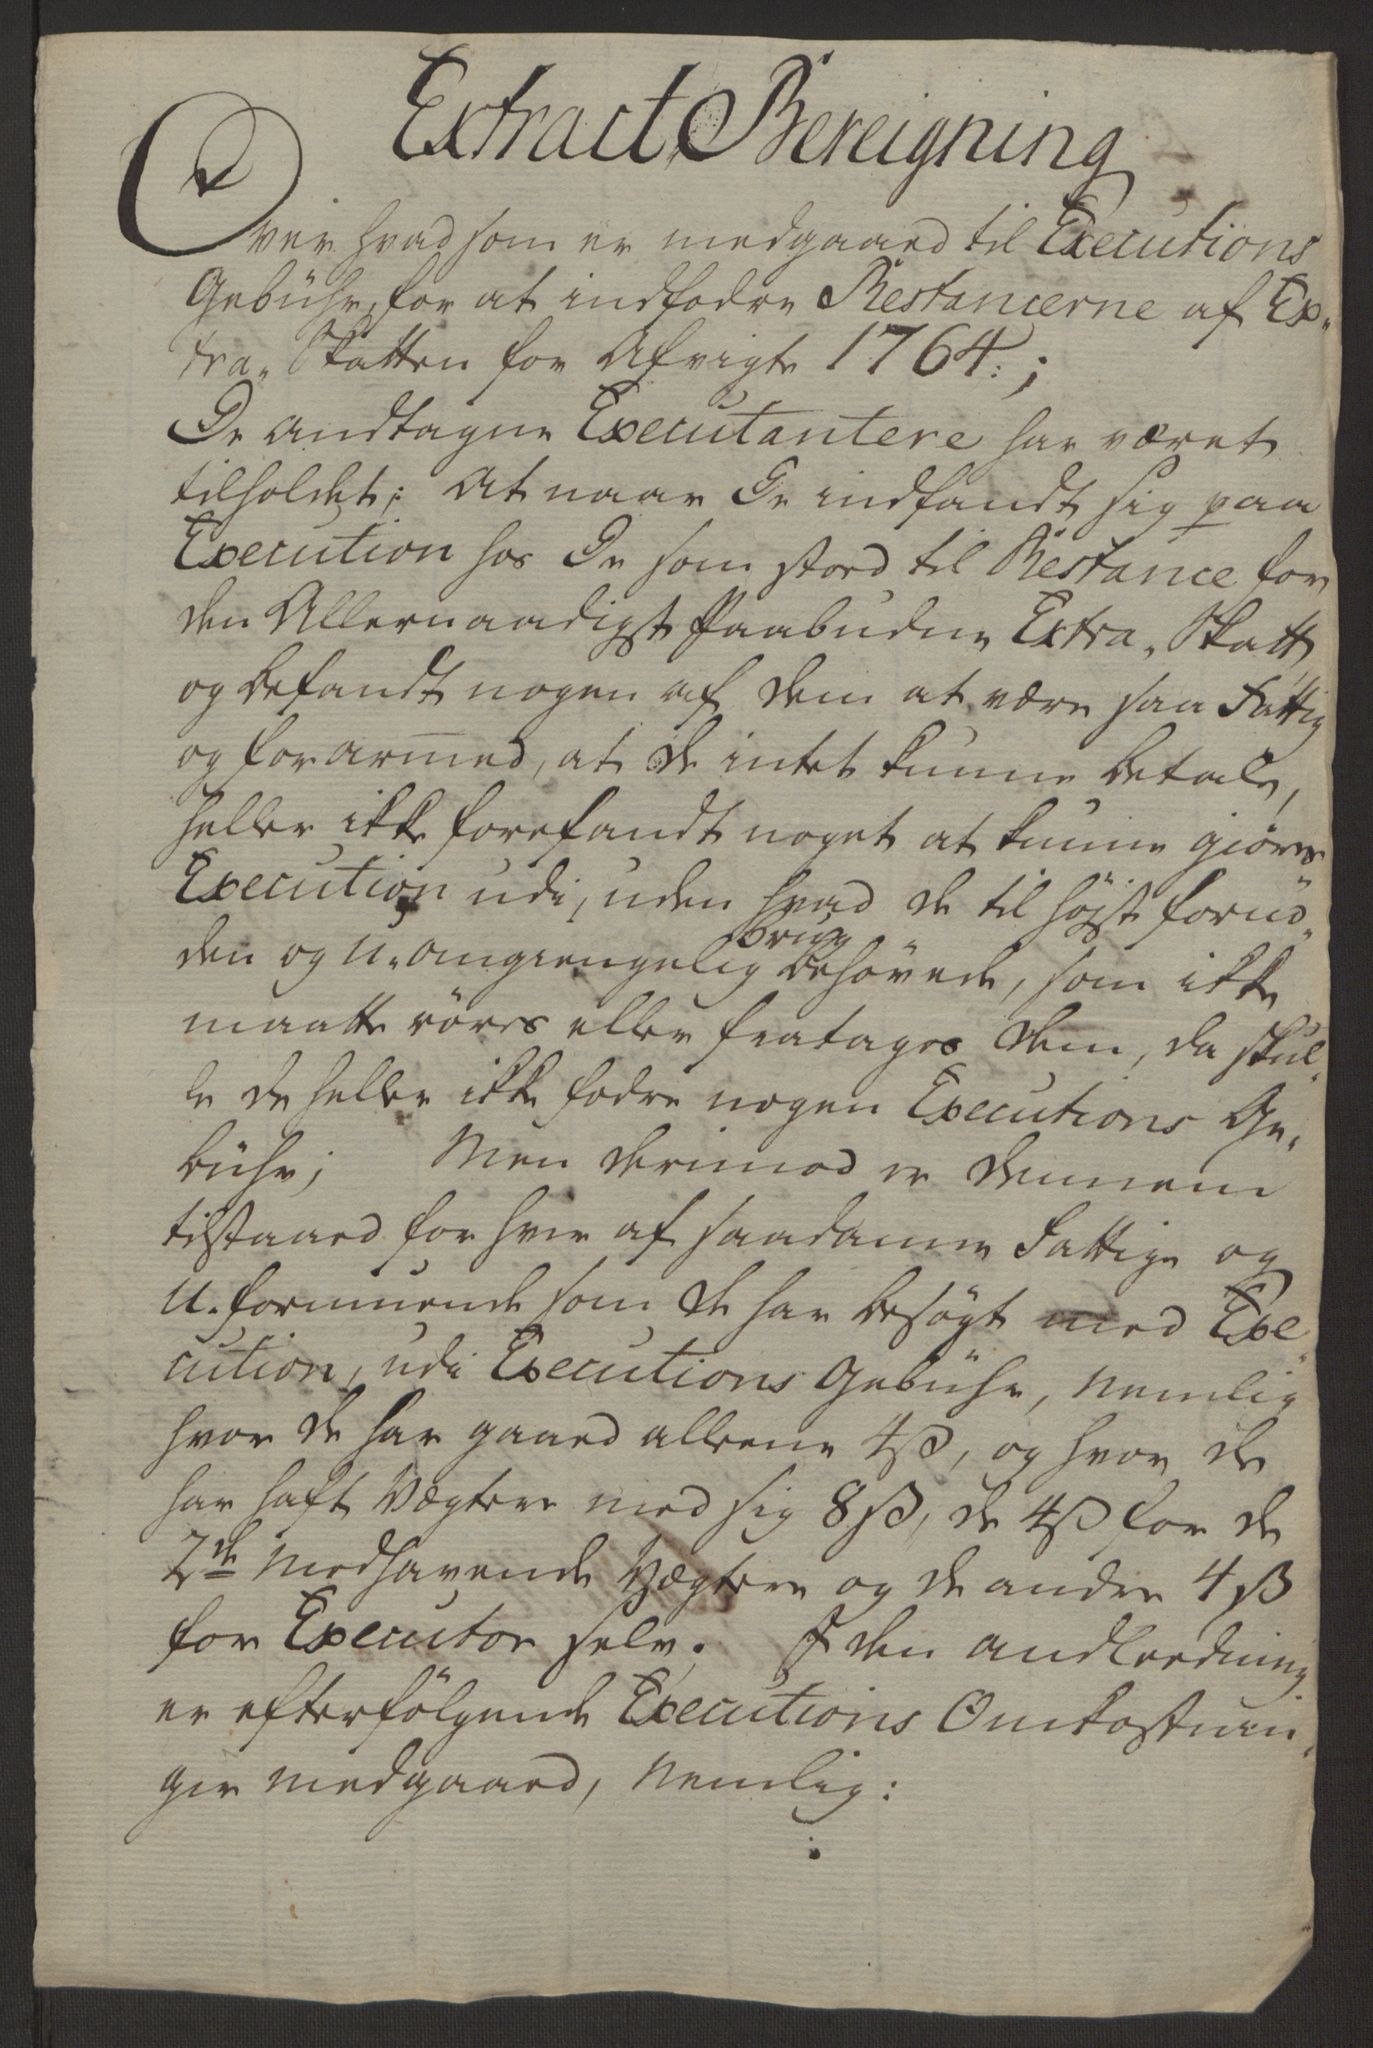 Extract Bereigning
Over hvad som er medgaaed til Executions
Gebühr, for at indfodre Restancerne af Ex„
tra„ Skatten for Afvigte 1764.;
De andtagne Executantere har været
tilholdet; At naar De indfandt sig paa
Execution hos De som stoed til Restance for
den Allernaadigst Paabudne Extra„ Skatt
og befandt nogen af dem at være saa Fattig
og forarmed, at de intet kunne betale,
heller ikke forefandt noget at kunne giøres
Execution udi, uden hvad de til højst fornö„
den og U.omgiengelig brug behövede, som ikke
maatte röres eller fratages dem, da skul„
le de heller ikke fodre nogen Executions Ge„
bühr; Men derimod er dennem
tilstaaed for hver af saadanne Fattige og
U.formuende som de har besögt med Exe„
cution, udi Executions Gebühr, Nemlig
hvor de har gaaed alleene 4 ß, og hvor de
har haft Vægtere med sig 8 ß, de 4 ß for de
2de Medhavende Vægtere og de andre 4 ß
for Executor selv. I den andleedning
er efterfölgende Executions Omkostnin„
ger medgaaed, Nemlig: